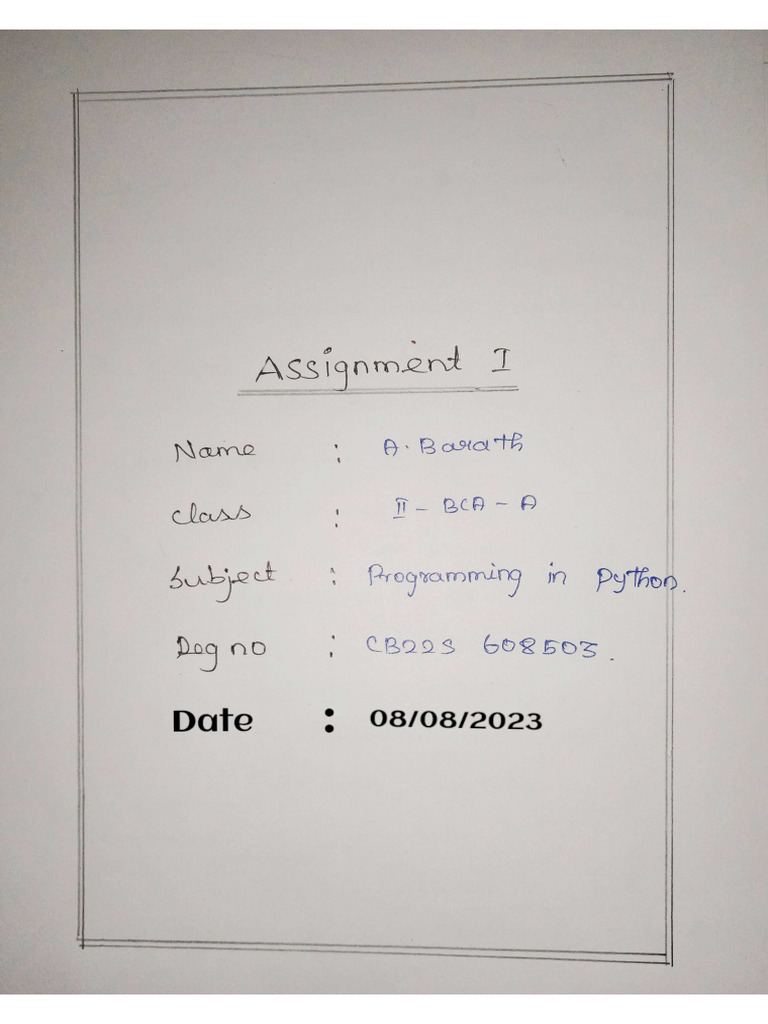 Assignment I
Name : A. Barath
Class : II - BCA - A
Subject : Programming in Python.
Reg no : CB22S 608503.
Date : 08/08/2023